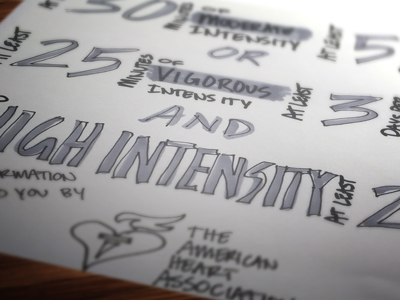 30
MINUTES
OF
MODERATE
INTENSITY
AT LEAST
5
OR
AT LEAST
25
MINUTES
OF
VIGOROUS
INTENSITY
AT LEAST
3
DAYS
AND
HIGH INTENSITY
AT LEAST
2
RMATION
YOU BY
THE
AMERICAN
HEART
ASSOCIATION